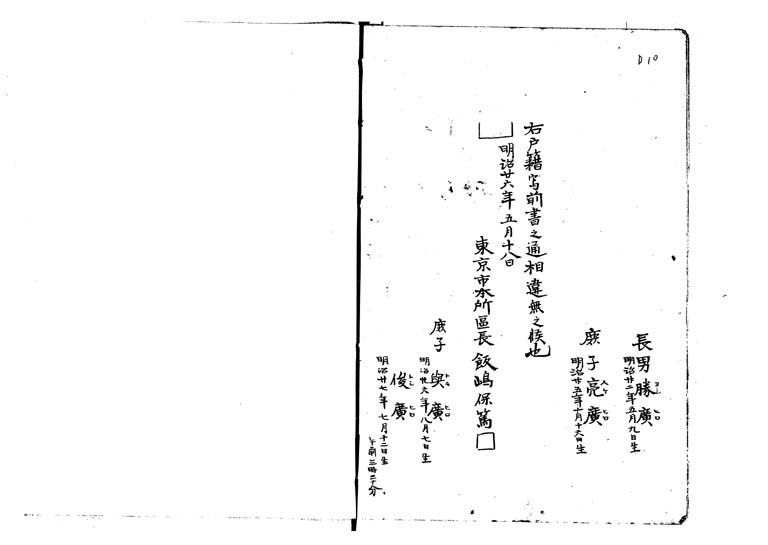 D10
長男勝廣
明治廿二年五月九日生
庶子亮廣
明治廿五年十月十六日生
右戸籍写前書之通相違無之候也
明治廿六年五月十八日
東京市本所區長 飯嶋保篤
庶子
與廣
明治廿六年八月七日生
俊廣
明治廿七年七月十二日生
午前三時三十分